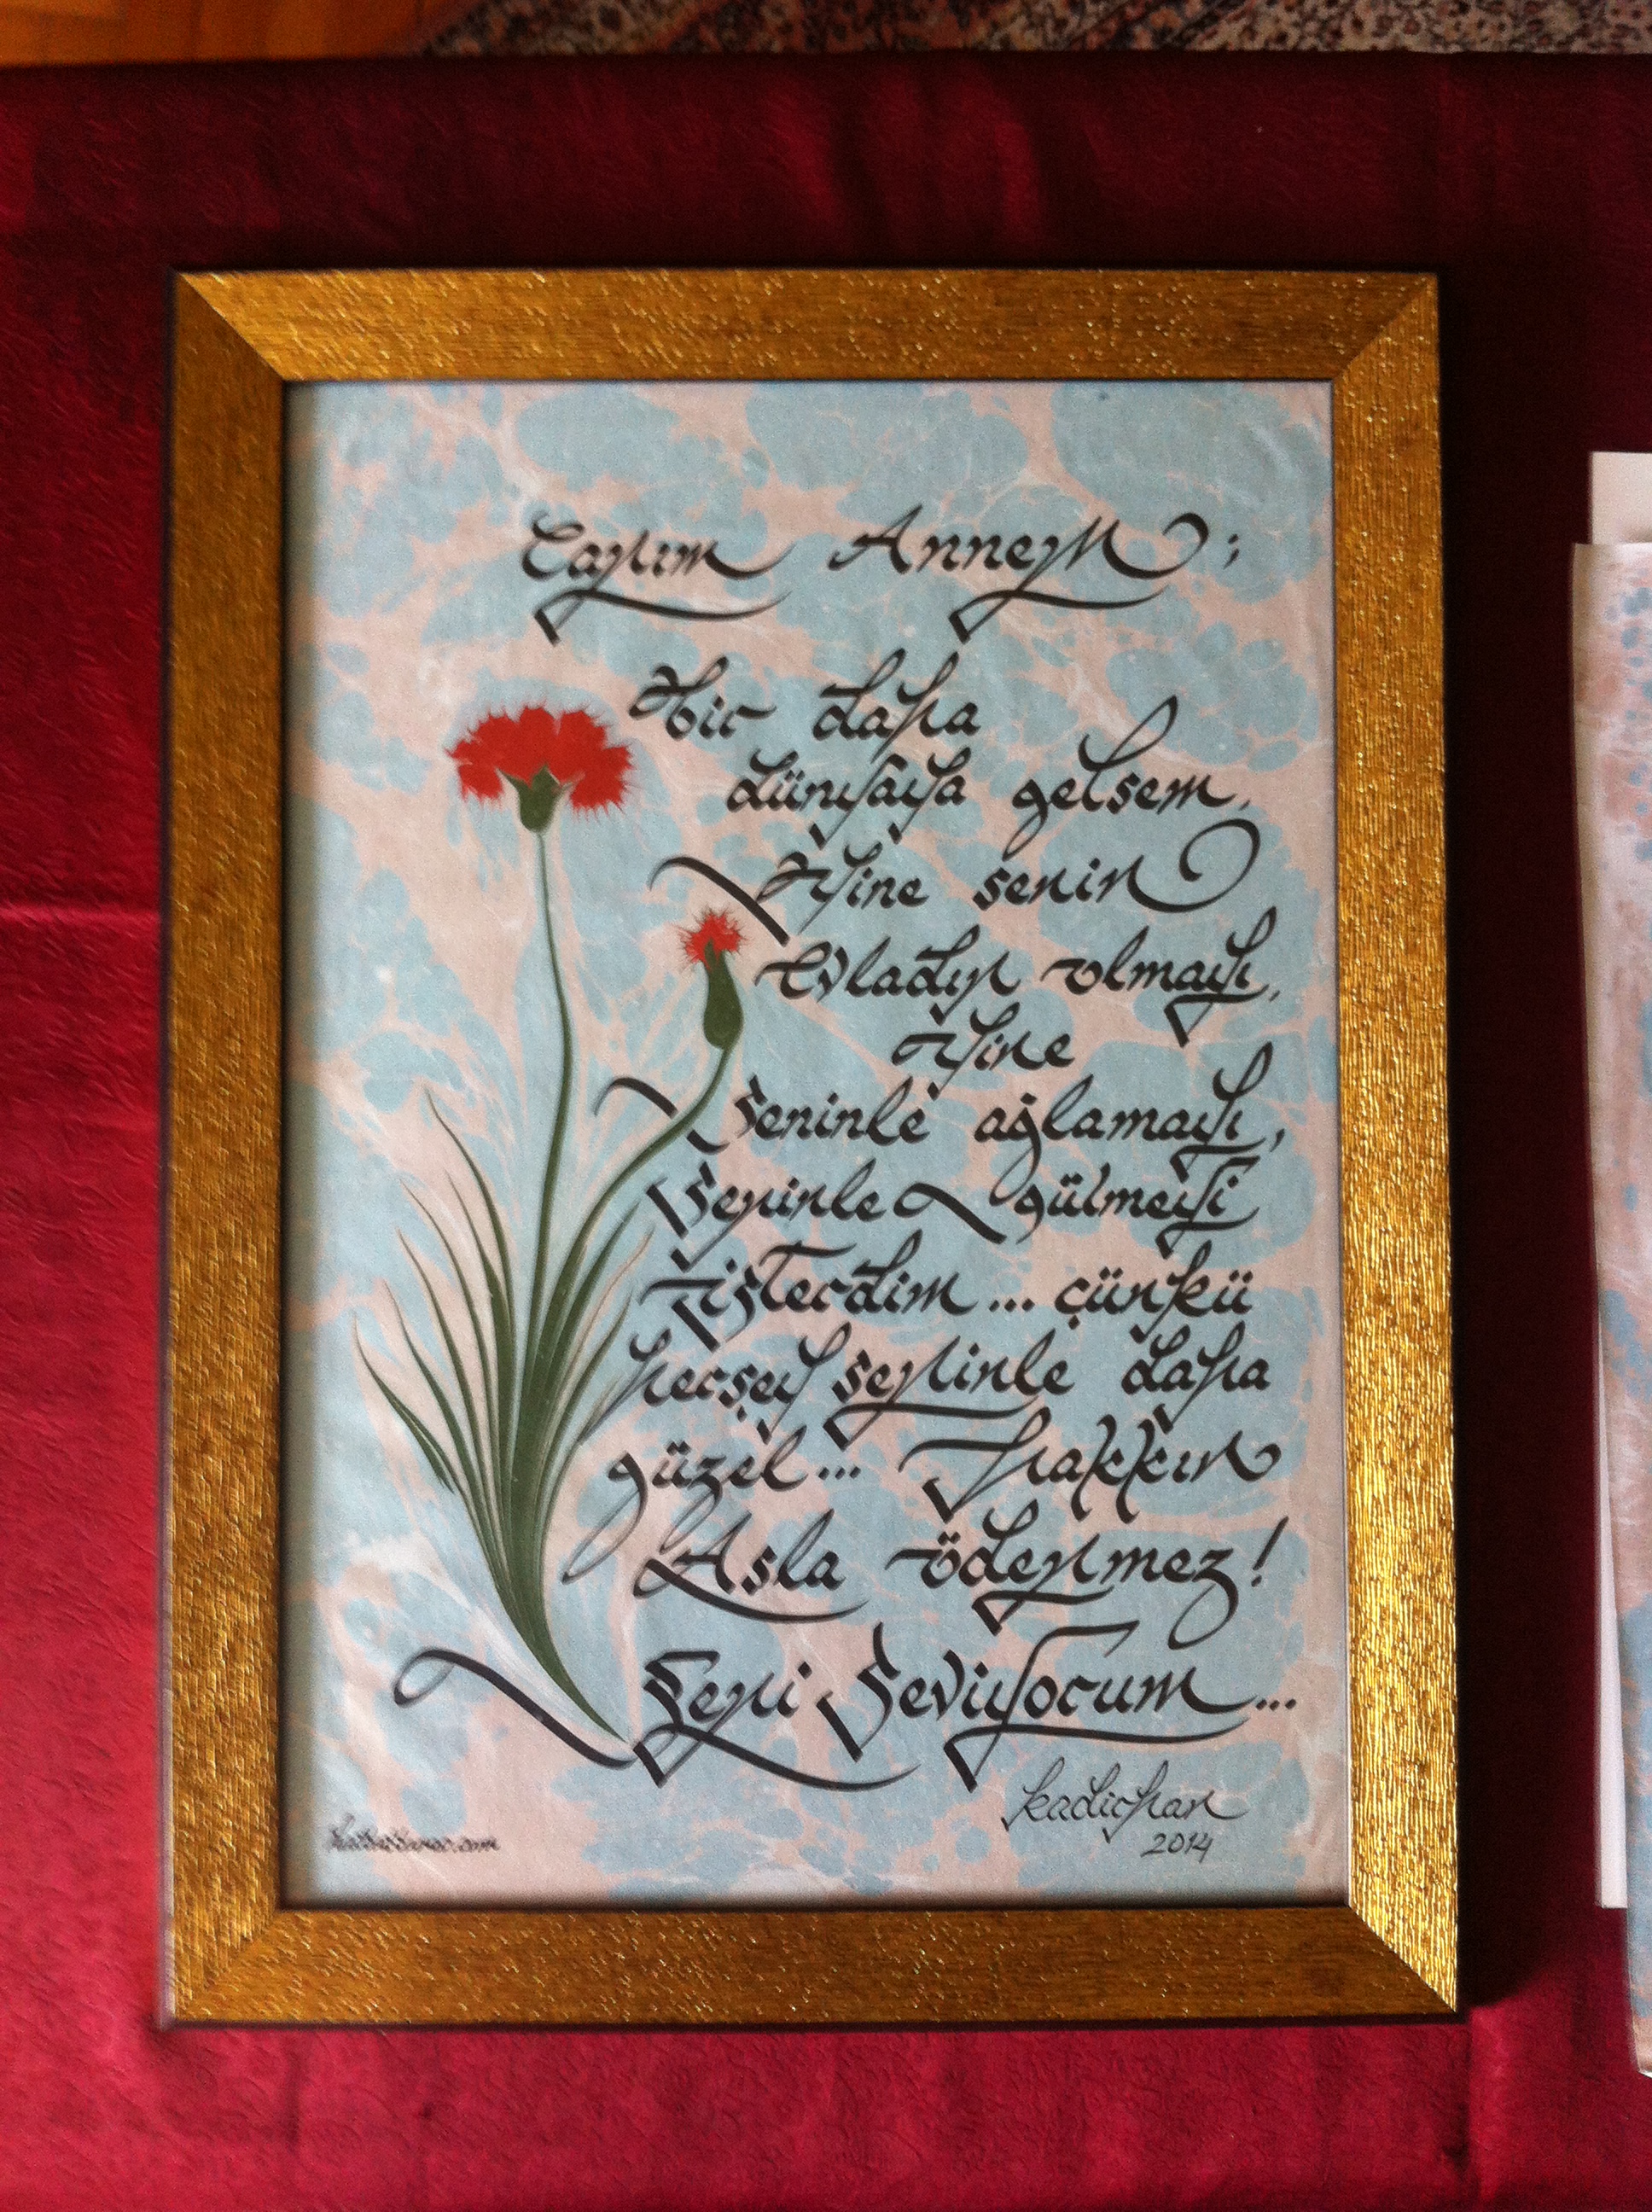 Canım Annem;
Bir daha
dünyaya gelsem,
Yine senin
Evladın olmayı,
Yine
Seninle ağlamayı,
Seninle gülmeyi
isterdim... çünkü
herşey seninle daha
güzel... Hakkın
Asla ödenmez!
Seni Seviyorum...
kadirhan
2014